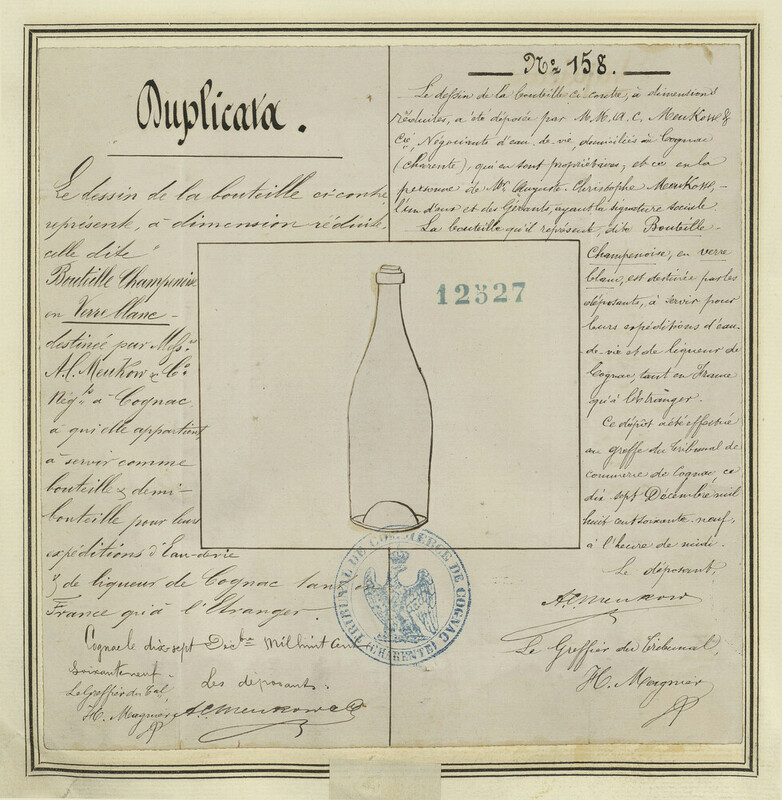 Duplicata.
Le dessin de la bouteille ci-contre
représente, à dimension réduite,
celle dite
Bouteille Champenoise
en Verre blanc -
destinée par Mess.rs
A.C. Meukow & C.o
Nég.ts à Cognac
à qui elle appartient,
à servir comme
bouteille & demi-
bouteille pour leurs
expéditions d'Eau-de-vie
& de liqueur de Cognac tant en
France qu'à l'Etranger.
Cognac le dix sept Décbre Mil huit cent
soixante neuf.
Le Greffier du Tal,
Les déposants:
H. Magnier
A.C. Meukow & Co
No 158.
Le dessin de la bouteille ci-contre, à dimentions
réduites, a été déposée par M.M. A.C. Meukow &
Cie, Négociants d'eau-de-vie, domiciliés à Cognac
(Charente), qui en sont propriétaires, et ce en la
personne de Mr Auguste-Christophe Meukow, -
l'un d'eux et des Gérants, ayant la signature sociale
La bouteille qu'il représente, dite Bouteille
Champenoise, en verre
blanc, est destinée par les
déposants, à servir pour
leurs expéditions d'eau-
de-vie et de liqueur de
Cognac, tant en France
qu'à l'étranger.
Ce dépôt a été effectué
au greffe du Tribunal de
commerce de Cognac ce
dix sept Décembre mil
huit cent soixante neuf,
à l'heure de midi.
Le déposant,
A.C. Meukow
Le Greffier du Tribunal,
H. Magnier
12527
TRIBUNAL DE COMMERCE DE COGNAC
(CHARENTE)